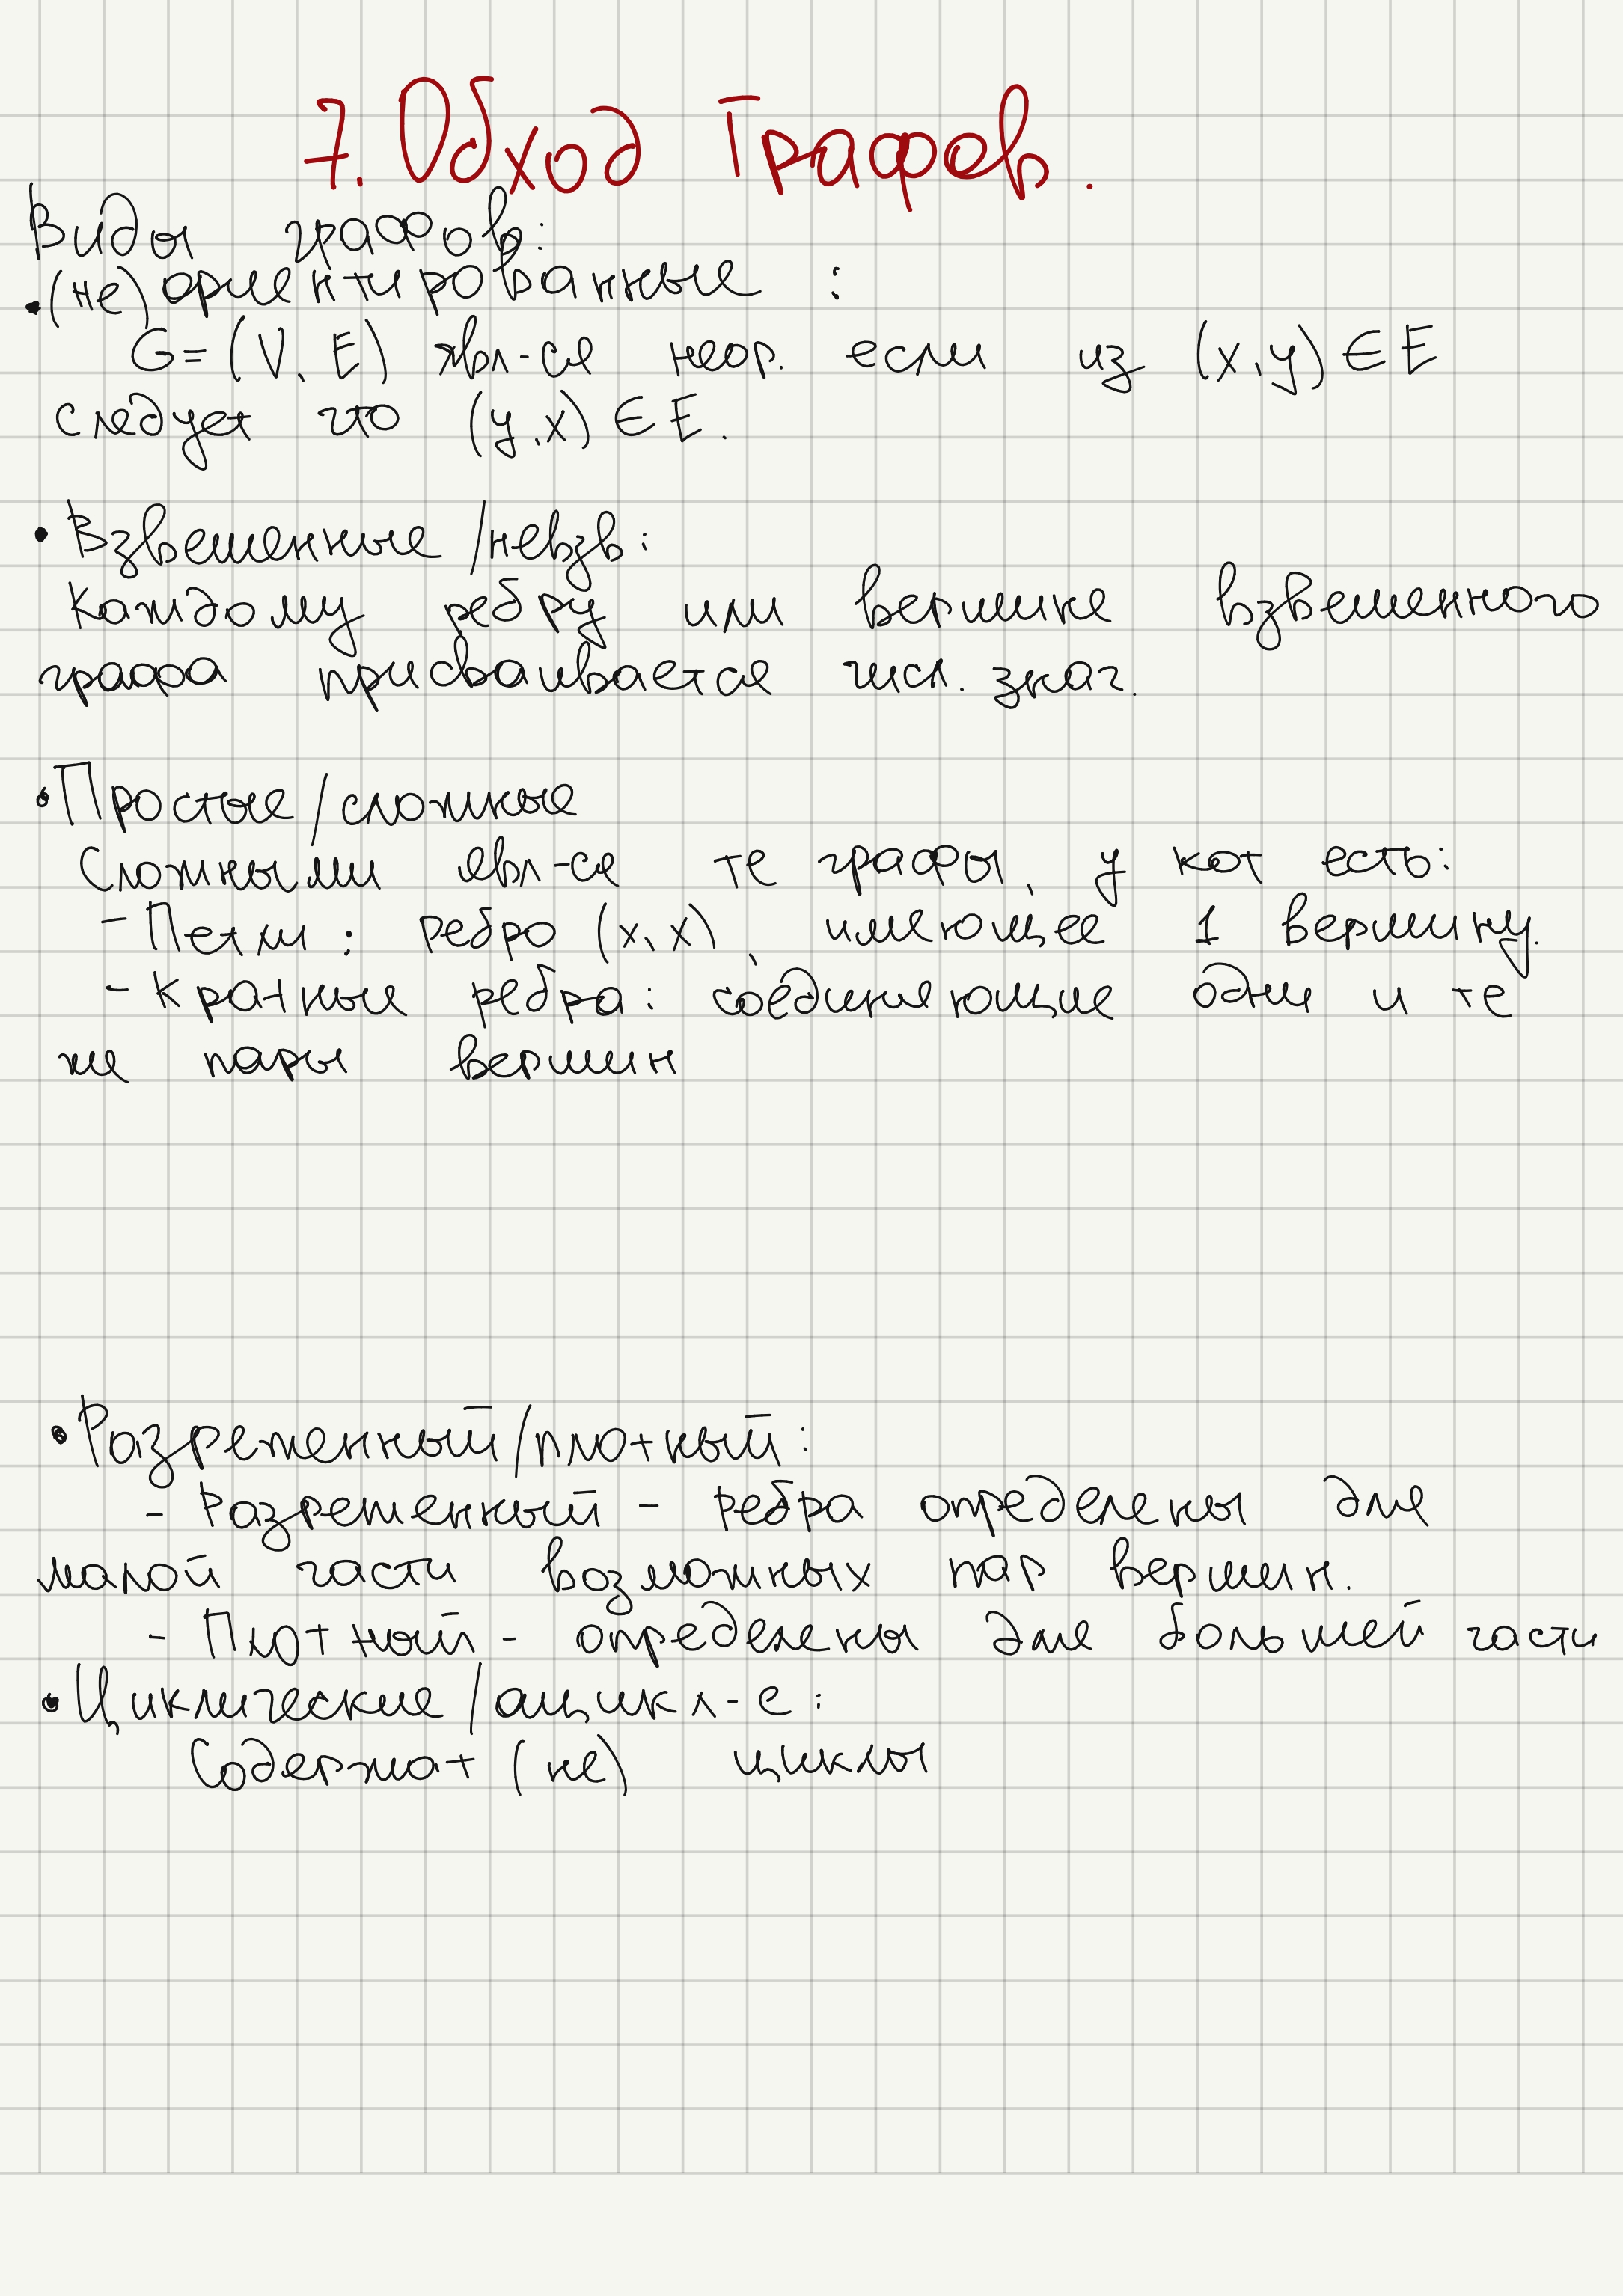 7. Обход Графов.
Виды графов:
• (не) ориентированные :
G = (V, E) явл-ся неор. если из (x, y) ∈ E
следует что (y, x) ∈ E.
• Взвешенные / невзв:
Каждому ребру или вершине взвешенного
графа присваивается числ. знач.
• Простые / сложные
Сложными явл-ся те графы, у кот есть:
- Петли : ребро (x, x), имеющее 1 вершину.
- кратные ребра: соединяющие одни и те
же пары вершин
• Разреженный / плотный:
- Разреженный - ребра определены для
малой части возможных пар вершин.
- Плотный - определены для большей части
• Циклические / ацикл-е:
Содержат (не) циклы